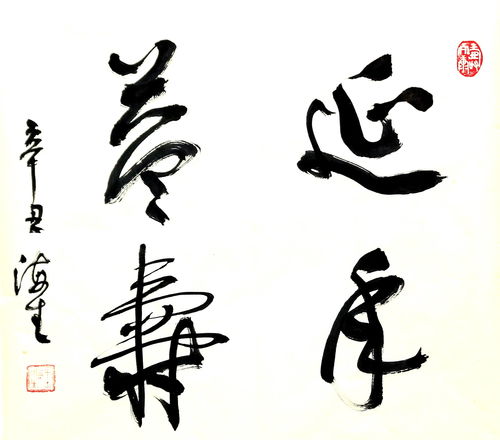 延年
益壽
辛丑海生